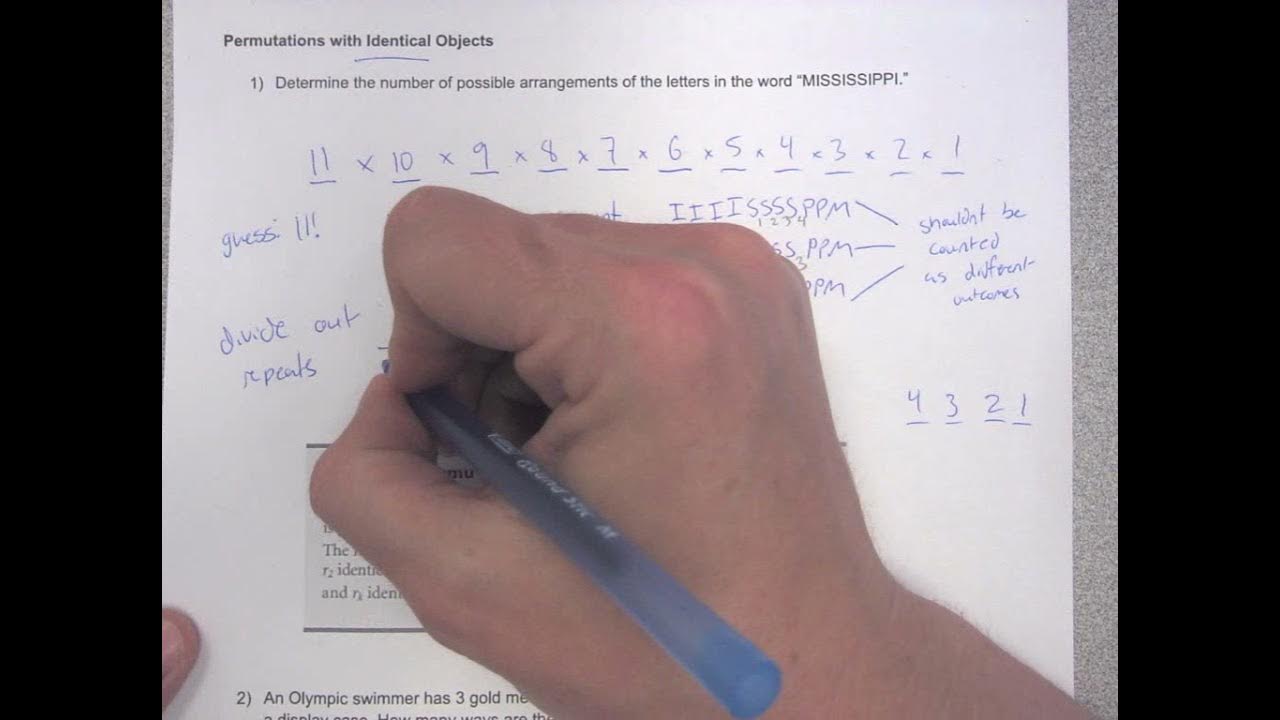 Permutations with Identical Objects
1) Determine the number of possible arrangements of the letters in the word “MISSISSIPPI.”
11 × 10 × 9 × 8 × 7 × 6 × 5 × 4 × 3 × 2 × 1
guess: 11!
IIIISSSSPPM
1 2 3 4
PPM
3
PPM
shouldnt be
counted
as different
outcomes
divide out
repeats
4 3 2 1
The
r₂ identi
and rₖ iden
2) An Olympic swimmer has 3 gold me
a display case. How many ways are th